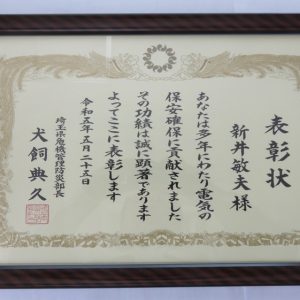 表彰状
新井敏夫様
あなたは多年にわたり電気の
保安確保に貢献されました
その功績は誠に顕著であります
よってここに表彰します
令和五年五月二十五日
埼玉県危機管理防災部長
犬飼典久